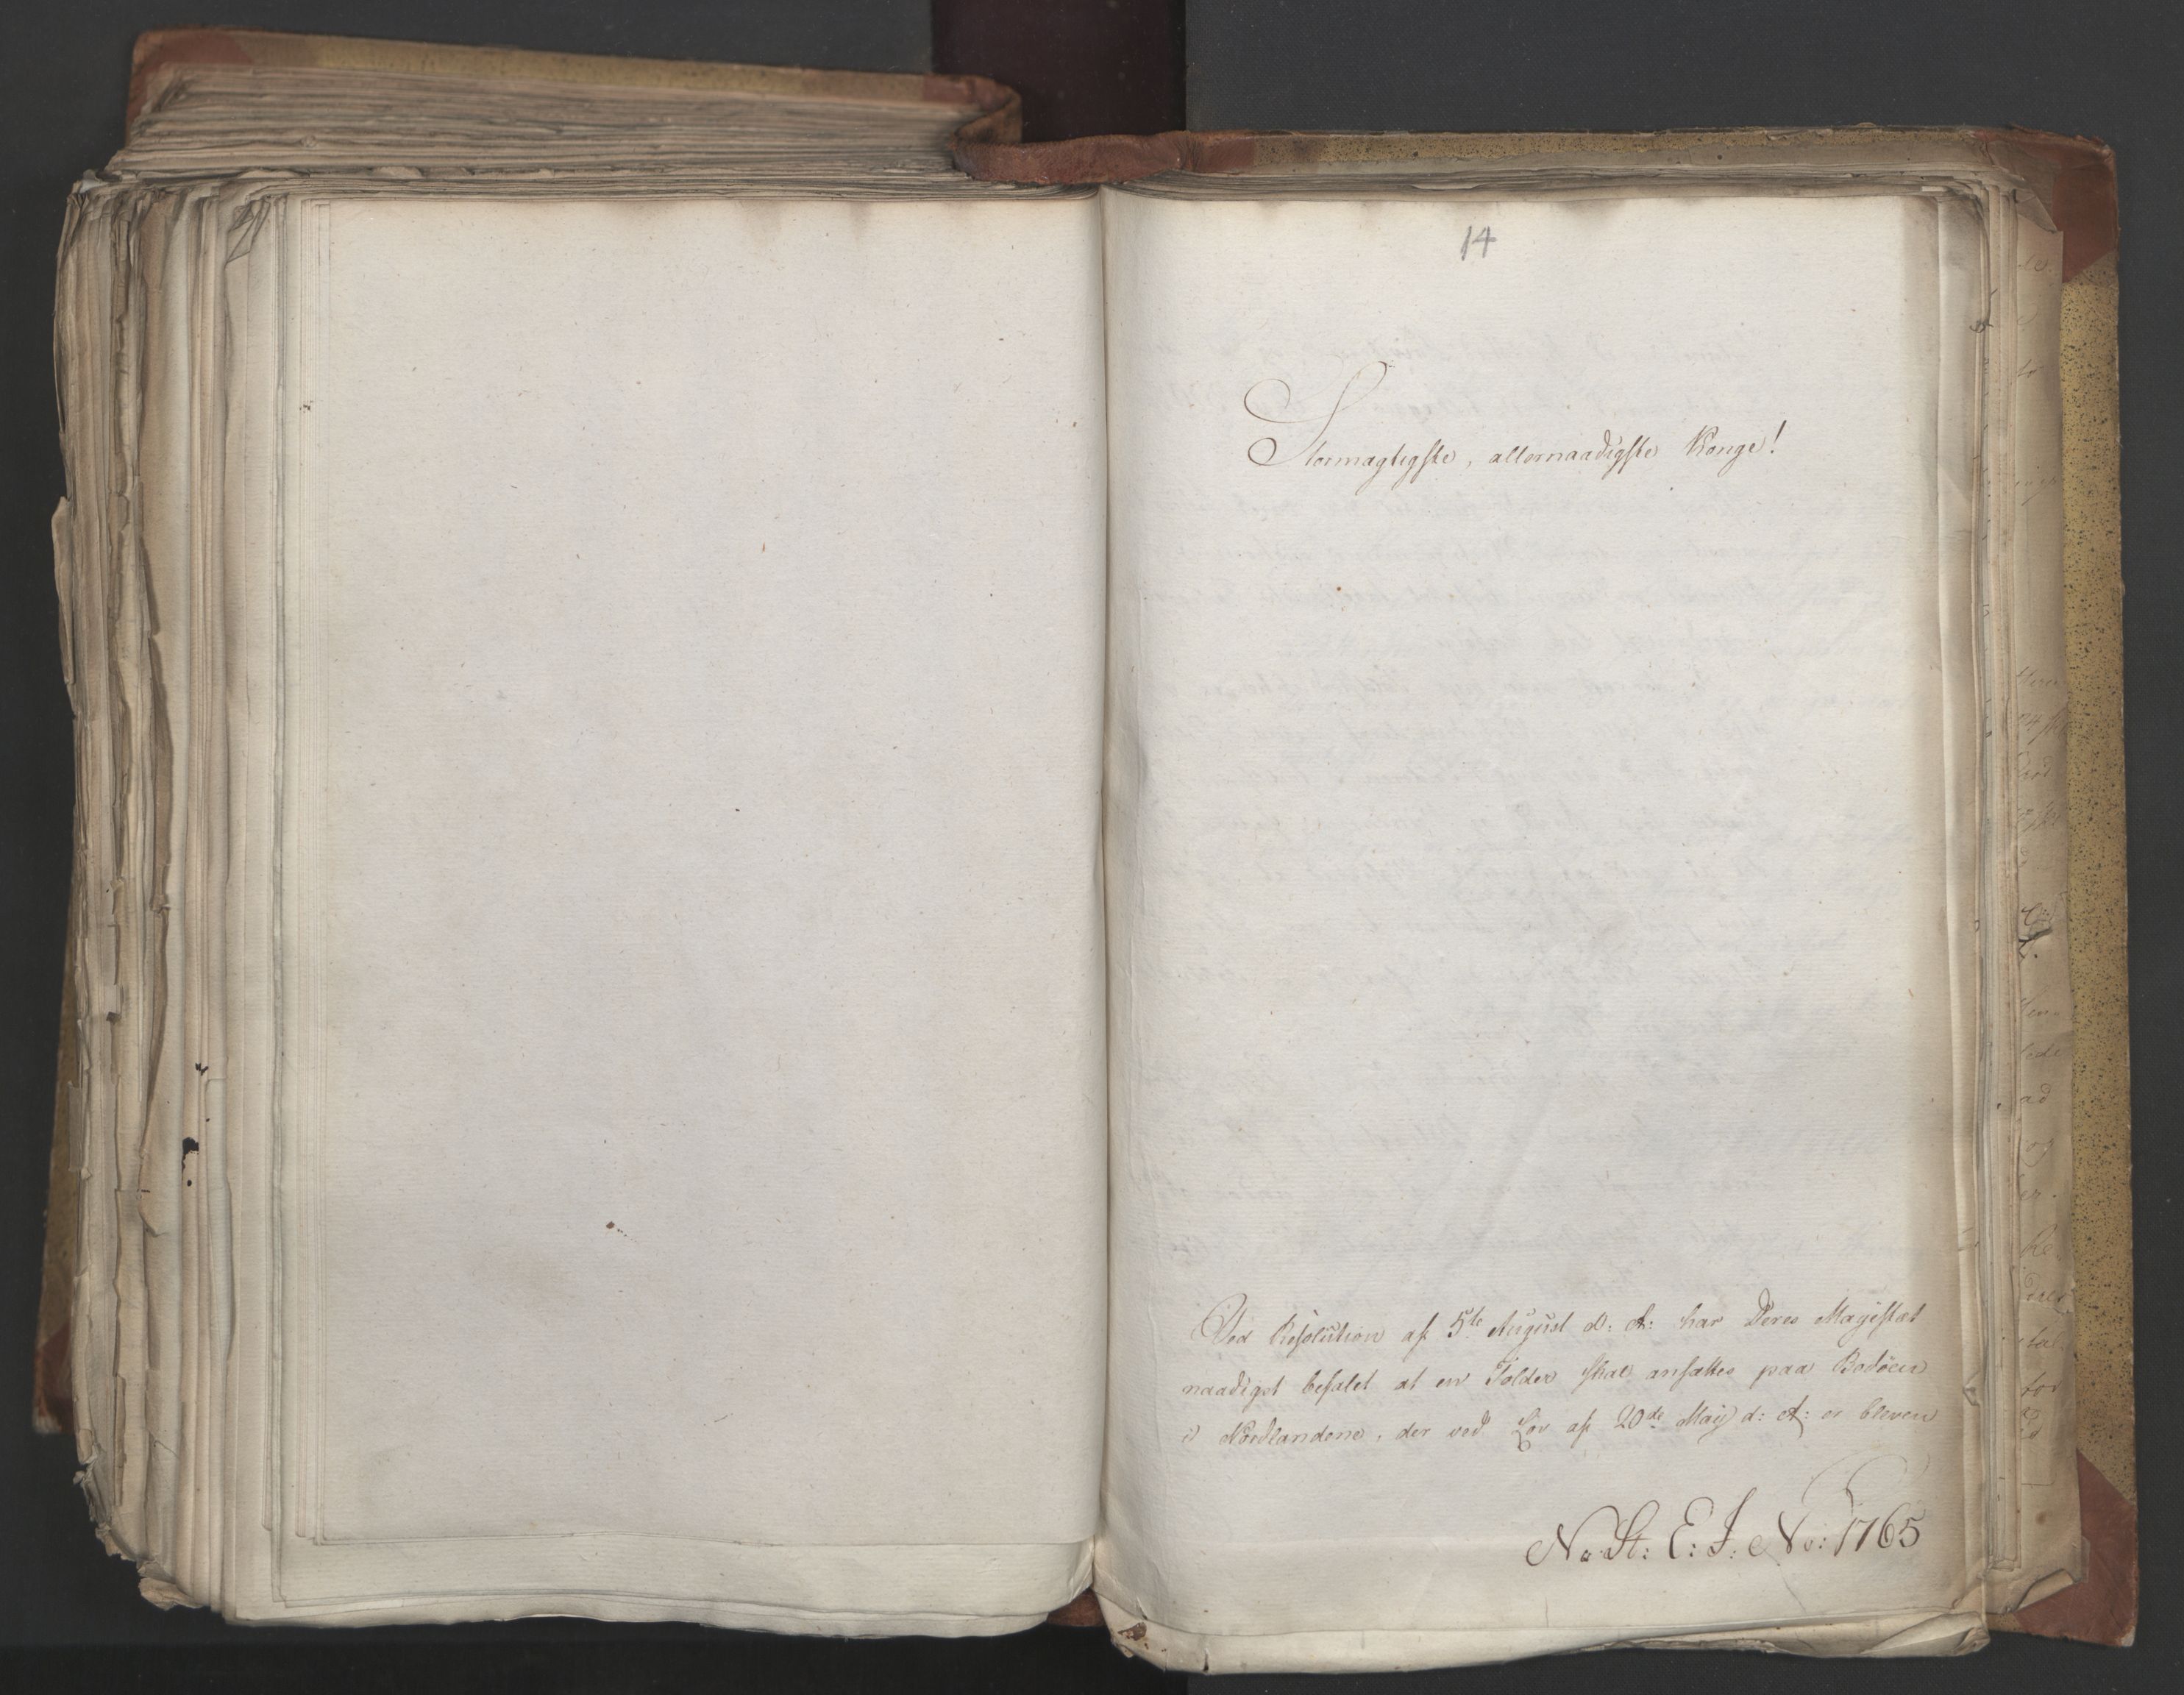 14
Stormægtigste, allernaadigste Konge!
Ved Resolution af 5te August d: A: har Deres Majestæt
naadigst befalet at en Tolder skal ansættes paa Bodøen
i Nordlandene, der ved Lov af 20de Maij d: A: er bleven
No: St: E: J: No: 1765